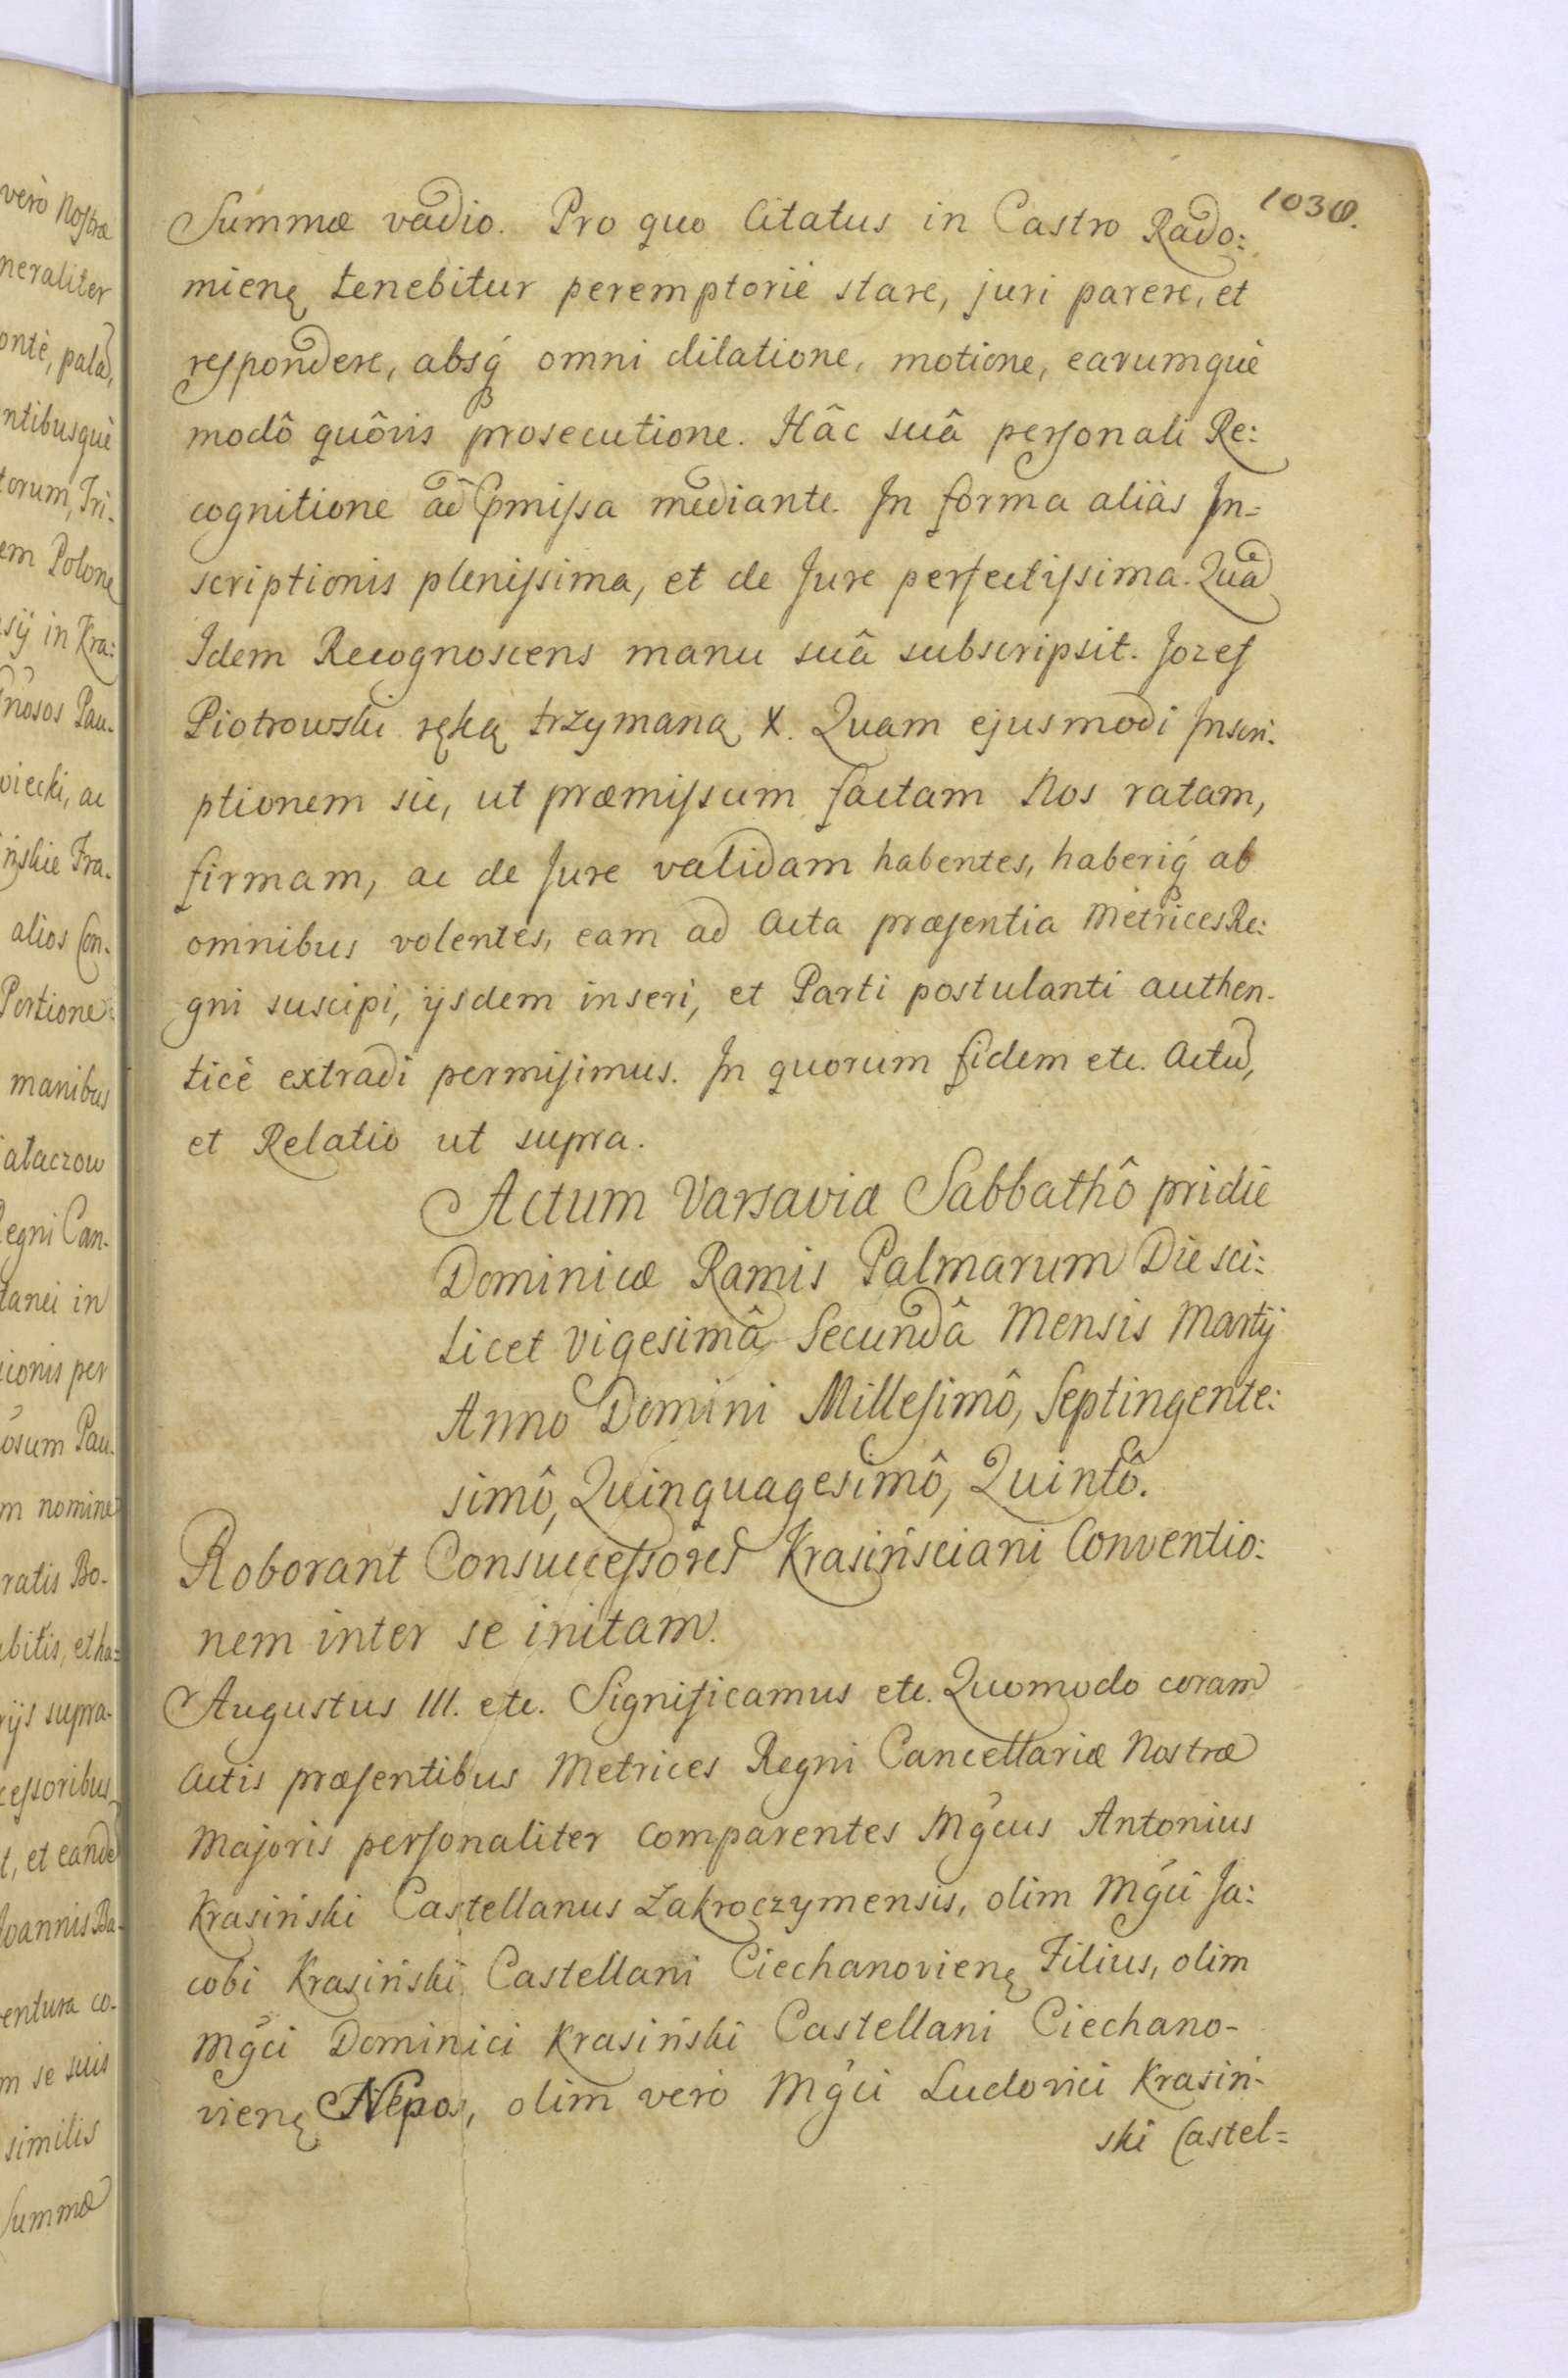 vero Nostræ
neraliter
onte, palã,
ntibusquè
torum, Tri-
em Polonę
sij in Kra:
nosos Pau-
viecki, ac
ińskie Fra-
alios Con-
Portione
manibus
ataczow
Regni Can-
tanei in
ionis per
osum Pau-
m nomine
ratis Bo-
bitis, et ha=
rijs supra-
cessoribus
t, et eandẽ
Joannis Ba-
entura co-
m se suis
similis
Summæ
1030.
Summæ vadio. Pro quo Citatus in Castro Rado:
mienę tenebitur peremptoriè stare, juri parere, et
respondere, absq́ omni dilatione, motione, earumquè
modô quôvis prosecutione. Hâc suâ personali Re:
cognitione ad p̃missa mediante. In forma aliàs In=
scriptionis plenissima, et de Jure perfectissima. Quã
Idem Recognoscens manu suâ subscripsit. Jozef
Piotrowski ręką trzymaną X. Quam ejusmodi Inscri-
ptionem sic, ut præmissum factam Nos ratam,
firmam, ac de Jure validam habentes, haberiq́ ab
omnibus volentes, eam ad Acta præsentia Metrices Re:
gni suscipi, ijsdem inseri, et Parti postulanti authen-
ticè extradi permisimus. In quorum fidem etc. Actũ,
et Relatio ut supra.
Actum Varsaviæ Sabbathô pridie
Dominicæ Ramis Palmarum Die sci:
licet vigesimâ Secundâ Mensis Martij
Anno Domini Millesimô, Septingente:
simô, Quinquagesimô, Quintô.
Roborant Consuccessores Krasińsciani Conventio:
nem inter se initam.
Augustus III. etc. Significamus etc. Quomodo coram
Actis præsentibus Metrices Regni Cancellariæ Nostræ
Majoris personaliter comparentes Mgcus Antonius
Krasiński Castellanus Zakroczymensis, olim Mgci Ja:
cobi Krasiński Castellani Ciechanovienę Filius, olim
Mgci Dominici Krasiński Castellani Ciechano-
vienę Nepos, olim verò Mgci Ludovici Krasiń-
ski Castel=